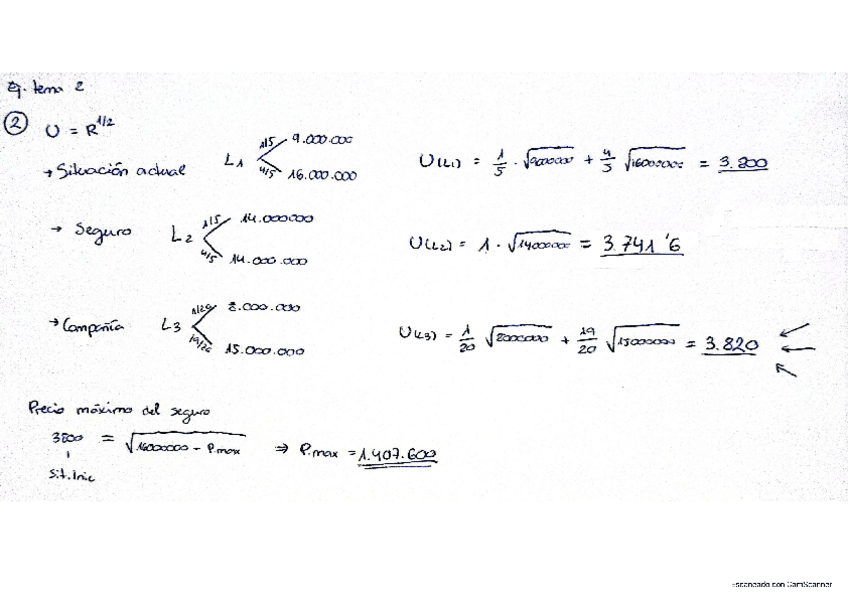 Ej. tema 2
② U = R^1/2
→ Situación actual L1 1/5 9.000.000 4/5 16.000.000 U(L1) = 1/5 · √9000000 + 4/5 √16000000 = 3.800
→ Seguro L2 1/5 14.000000 4/5 14.000.000 U(L2) = 1 · √14000000 = 3.741'6
→ Compañía L3 1/20 8.000.000 19/20 15.000.000 U(L3) = 1/20 √8000000 + 19/20 √15000000 = 3.820
Precio máximo del seguro
3800 = √16000000 - P.max ⇒ P.max = 1.407.600
Sit. Inic
Escaneado con CamScanner